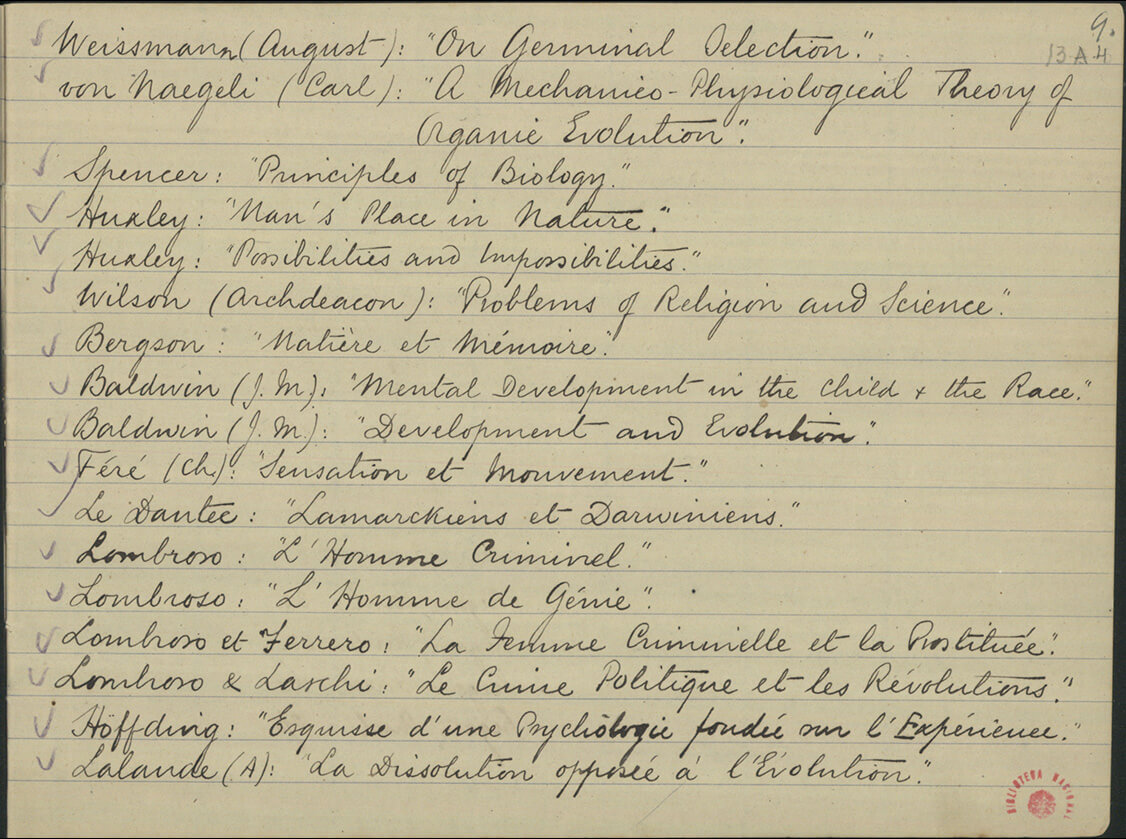 9.
13 A 4
Weissmann (August): "On Germinal Selection".
von Naegeli (Carl): "A Mechanico-Physiological Theory of
Organic Evolution".
Spencer: "Principles of Biology."
Huxley: "Man's Place in Nature."
Huxley: "Possibilities and Impossibilities."
Wilson (Archdeacon): "Problems of Religion and Science."
Bergson: "Matière et Mémoire".
Baldwin (J.M.): "Mental Development in the Child + the Race."
Baldwin (J.M.): "Development and Evolution".
Féré (Ch.): "Sensation et Mouvement."
Le Dantec: "Lamarckiens et Darwiniens."
Lombroso: "L'Homme Criminel."
Lombroso: "L'Homme de Génie".
Lombroso et Ferrero: "La Femme Criminelle et la Prostituée".
Lombroso & Laschi: "Le Crime Politique et les Révolutions."
Höffding: "Esquisse d'une Psychologie fondée sur l'Expérience."
Lalande (A): "La Dissolution opposée à l'Évolution".
BIBLIOTECA NACIONAL